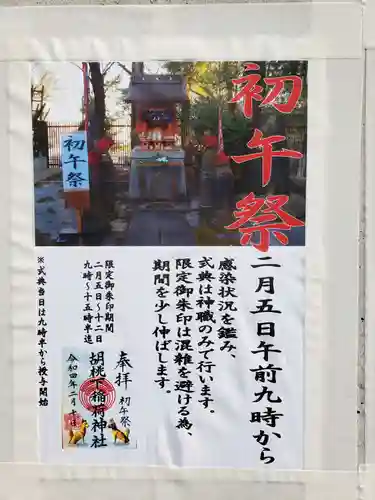 初午祭
初午祭
二月五日午前九時から
感染状況を鑑み、
式典は神職のみで行います。
限定御朱印は混雑を避ける為、
期間を少し伸ばします。
限定御朱印期間
二月五日〜十二日
九時〜十五時半迄
奉拝
初午祭
胡桃下稲荷神社
令和四年二月十日
※式典当日は九時半から授与開始